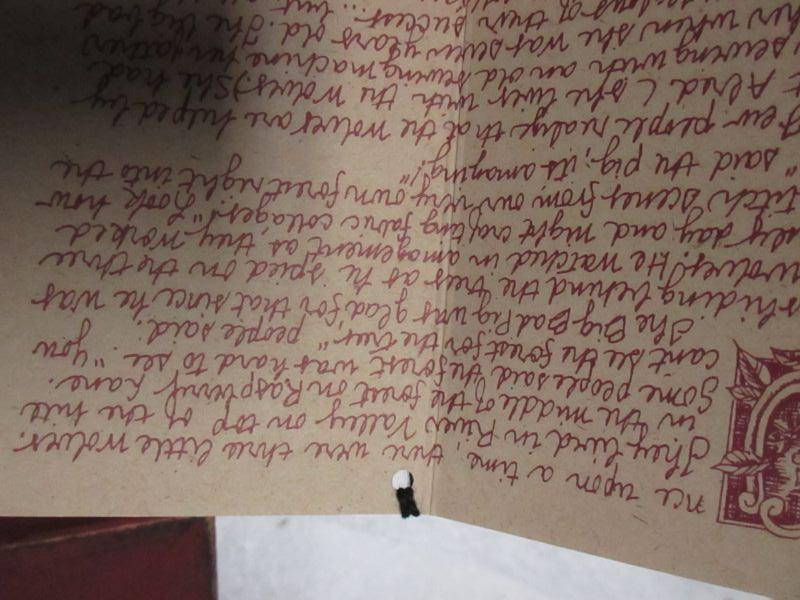 nce upon a time, there were three little wolves.
They lived in River Valley on top of the hill
in the middle of the forest on Raspberry Lane.
Some people said the forest was hard to see. "you
can't see the forest for the trees" people said.
The Big Bad Pig was glad for that since he was
hiding behind the trees as he spied on the three
wolves! He watched in amazement as they worked
day and night crafting fabric collages! "Look how
titch scenes from our very own forest right into the
" said the pig, "its amazing!"
few people realize that the wolves are helped by
t Alred (she lives with the wolves) She had
sewing with an old sewing machine her father
her when she was seven years old. The big bad
days of their success but